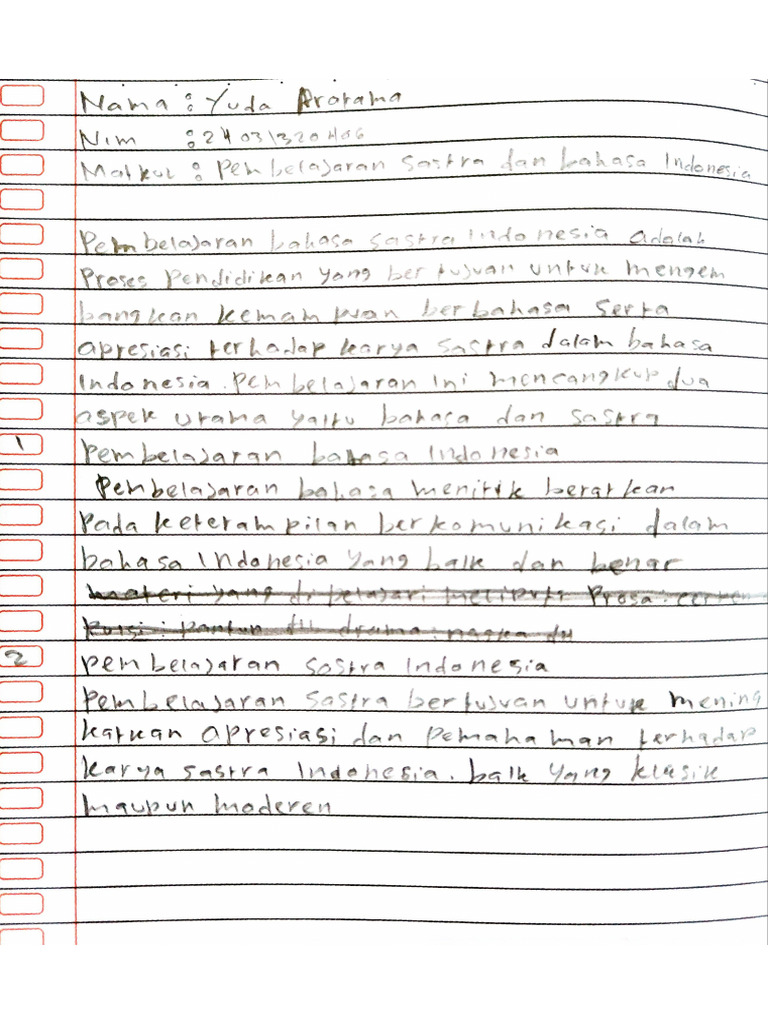 Nama : Yuda Pratama
Nim : 24031320406
Matkul : Pembelajaran sastra dan bahasa Indonesia
Pembelajaran bahasa sastra Indonesia adalah
Proses Pendidikan yang bertujuan untuk mengem
bangkan kemampuan berbahasa serta
apresiasi terhadap karya sastra dalam bahasa
Indonesia. Pembelajaran ini mencangkup dua
aspek utama yaitu bahasa dan sastra
1 Pembelajaran bahasa Indonesia
Pembelajaran bahasa menitik beratkan
Pada keterampilan berkomunikasi dalam
bahasa Indonesia yang baik dan benar
materi yang di pelajari meliputi Prosa : cerpen
Puisi : pantun dll drama : naska dll
2 pembelajaran sastra Indonesia
Pembelajaran sastra bertujuan untuk mening
katkan apresiasi dan pemahaman terhadap
karya sastra Indonesia. baik yang klasik
maupun moderen